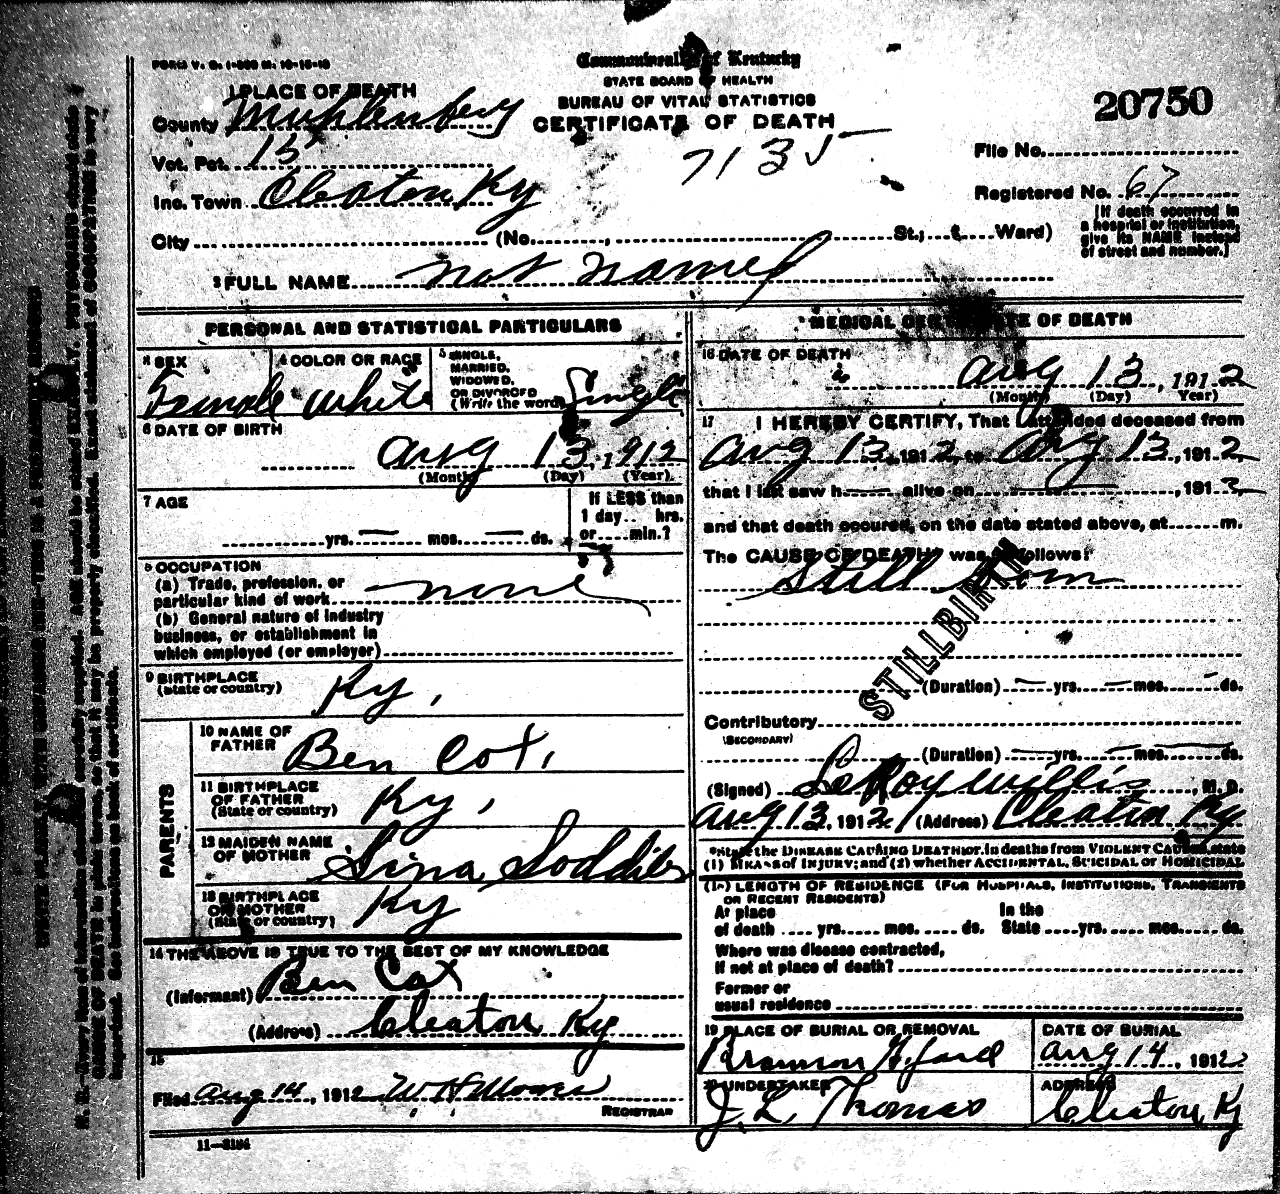 FORM V. S. 1-
Commonwealth of Kentucky
STATE BOARD OF HEALTH
BUREAU OF VITAL STATISTICS
CERTIFICATE OF DEATH
20750
1 PLACE OF DEATH
County Muhlenberg
Vot. Pct. 15
7135
File No.
Inc. Town Cleaton, Ky
Registered No. 67
City (No. , St.; Ward)
[If death occurred in
a hospital or institution,
give its NAME instead
of street and number.]
2 FULL NAME not named
PERSONAL AND STATISTICAL PARTICULARS
3 SEX
Female
4 COLOR OR RACE
White
5 SINGLE,
MARRIED,
WIDOWED,
OR DIVORCED
(Write the word) Single
6 DATE OF BIRTH
Aug 13, 1912
(Month) (Day) (Year)
7 AGE
yrs. mos. ds.
If LESS than
1 day hrs.
or min.?
8 OCCUPATION
(a) Trade, profession, or
particular kind of work none
(b) General nature of industry
business, or establishment in
which employed (or employer)
9 BIRTHPLACE
(State or country) Ky,
PARENTS
10 NAME OF
FATHER Ben Cox,
11 BIRTHPLACE
OF FATHER
(State or country) Ky,
12 MAIDEN NAME
OF MOTHER
13 BIRTHPLACE
OF MOTHER
(State or country) Ky
14 THE ABOVE IS TRUE TO THE BEST OF MY KNOWLEDGE
(Informant) Ben Cox
(Address) Cleaton Ky
15
Filed Aug 14, 1912 W H Moore
REGISTRAR
11-
MEDICAL CERTIFICATE OF DEATH
16 DATE OF DEATH
Aug 13, 1912
(Month) (Day) Year)
17 I HEREBY CERTIFY, That I attended deceased from
Aug 13, 1912, to Aug 13, 1912,
that I last saw h alive on , 191
and that death occured, on the date stated above, at m.
The CAUSE OF DEATH* was as follows:
Still born
STILLBIRTH
(Duration) yrs. mos. ds.
Contributory
(SECONDARY)
(Duration) yrs. mos. ds.
(Signed) LeRoy Willis, M. D.
Aug 13, 1912 (Address) Cleaton Ky
*State the DISEASE CAUSING DEATH or, in deaths from VIOLENT CAUSES, state
(1) MEANS of INJURY; and (2) whether ACCIDENTAL, SUICIDAL or HOMICIDAL
18 LENGTH OF RESIDENCE (FOR HOSPITALS, INSTITUTIONS, TRANSIENTS
OR RECENT RESIDENTS)
At place
of death yrs. mos. ds.
In the
State yrs. mos. ds.
Where was disease contracted,
if not at place of death?
Former or
usual residence
19 PLACE OF BURIAL OR REMOVAL
DATE OF BURIAL
Aug 14, 1912
20 UNDERTAKER
J. L. Thomas
ADDRESS
Cleaton, Ky